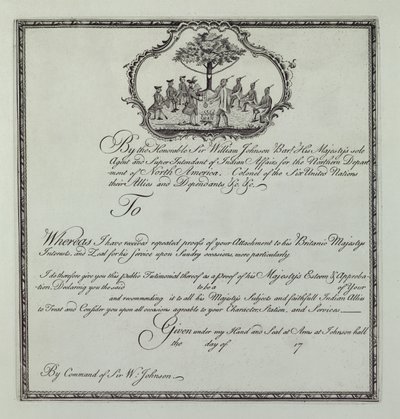 By the Honorable Sir William Johnson Bart. His Majesty's sole
Agent and Super Intendant of Indian Affairs for the Northern Depart
ment of North America, Colonel of the Six United Nations
their Allies and Dependants &c. &c.
To
Whereas I have received repeated proofs of your Attachment to his Britanic Majestys
Interests, and Zeal for his Service upon Sundry occasions, more particularly
I do therefore give you this public Testimonial thereof as a proof of his Majesty's Esteem & Approba
tion, Declaring you the said to be a of Your
and recommending it to all his Majesty's Subjects and faithfull Indian Allies
to Treat and Consider you upon all occasions agreable to your Character, Station, and Services
Given under my Hand and Seal at Arms at Johnson hall
the day of 17
By Command of Sir Wm. Johnson.